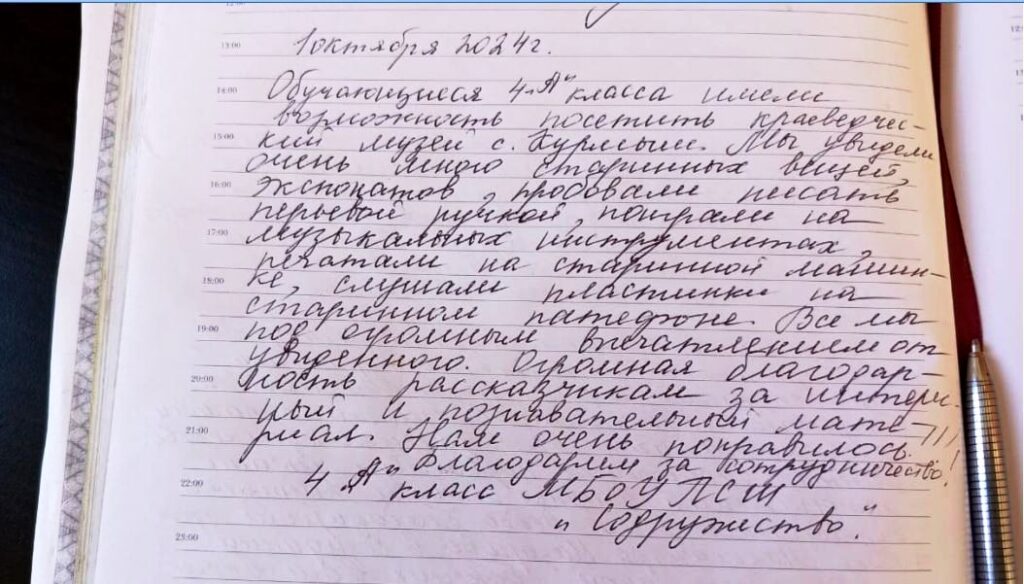 13:00
1 октября 2024г.
14:00
Обучающиеся 4 „А" класса имели
возможность посетить краеведчес-
15:00
кий музей с. Курмыш. Мы увидели
очень много старинных вещей,
16:00
экспонатов, пробовали писать
перьевой ручкой, поиграли на
17:00
музыкальных инструментах,
печатали на старинной машин-
18:00
ке, слушали пластинки на
старинном патефоне. Все мы
19:00
под огромным впечатлением от
увиденного. Огромная благодар-
20:00
ность рассказчикам за интерес-
ный и познавательный мате-
21:00
риал. Нам очень понравилось!!!
Благодарим за сотрудничество!
22:00
4 „А" класс МБОУ ПСШ
„Содружество."
23:00